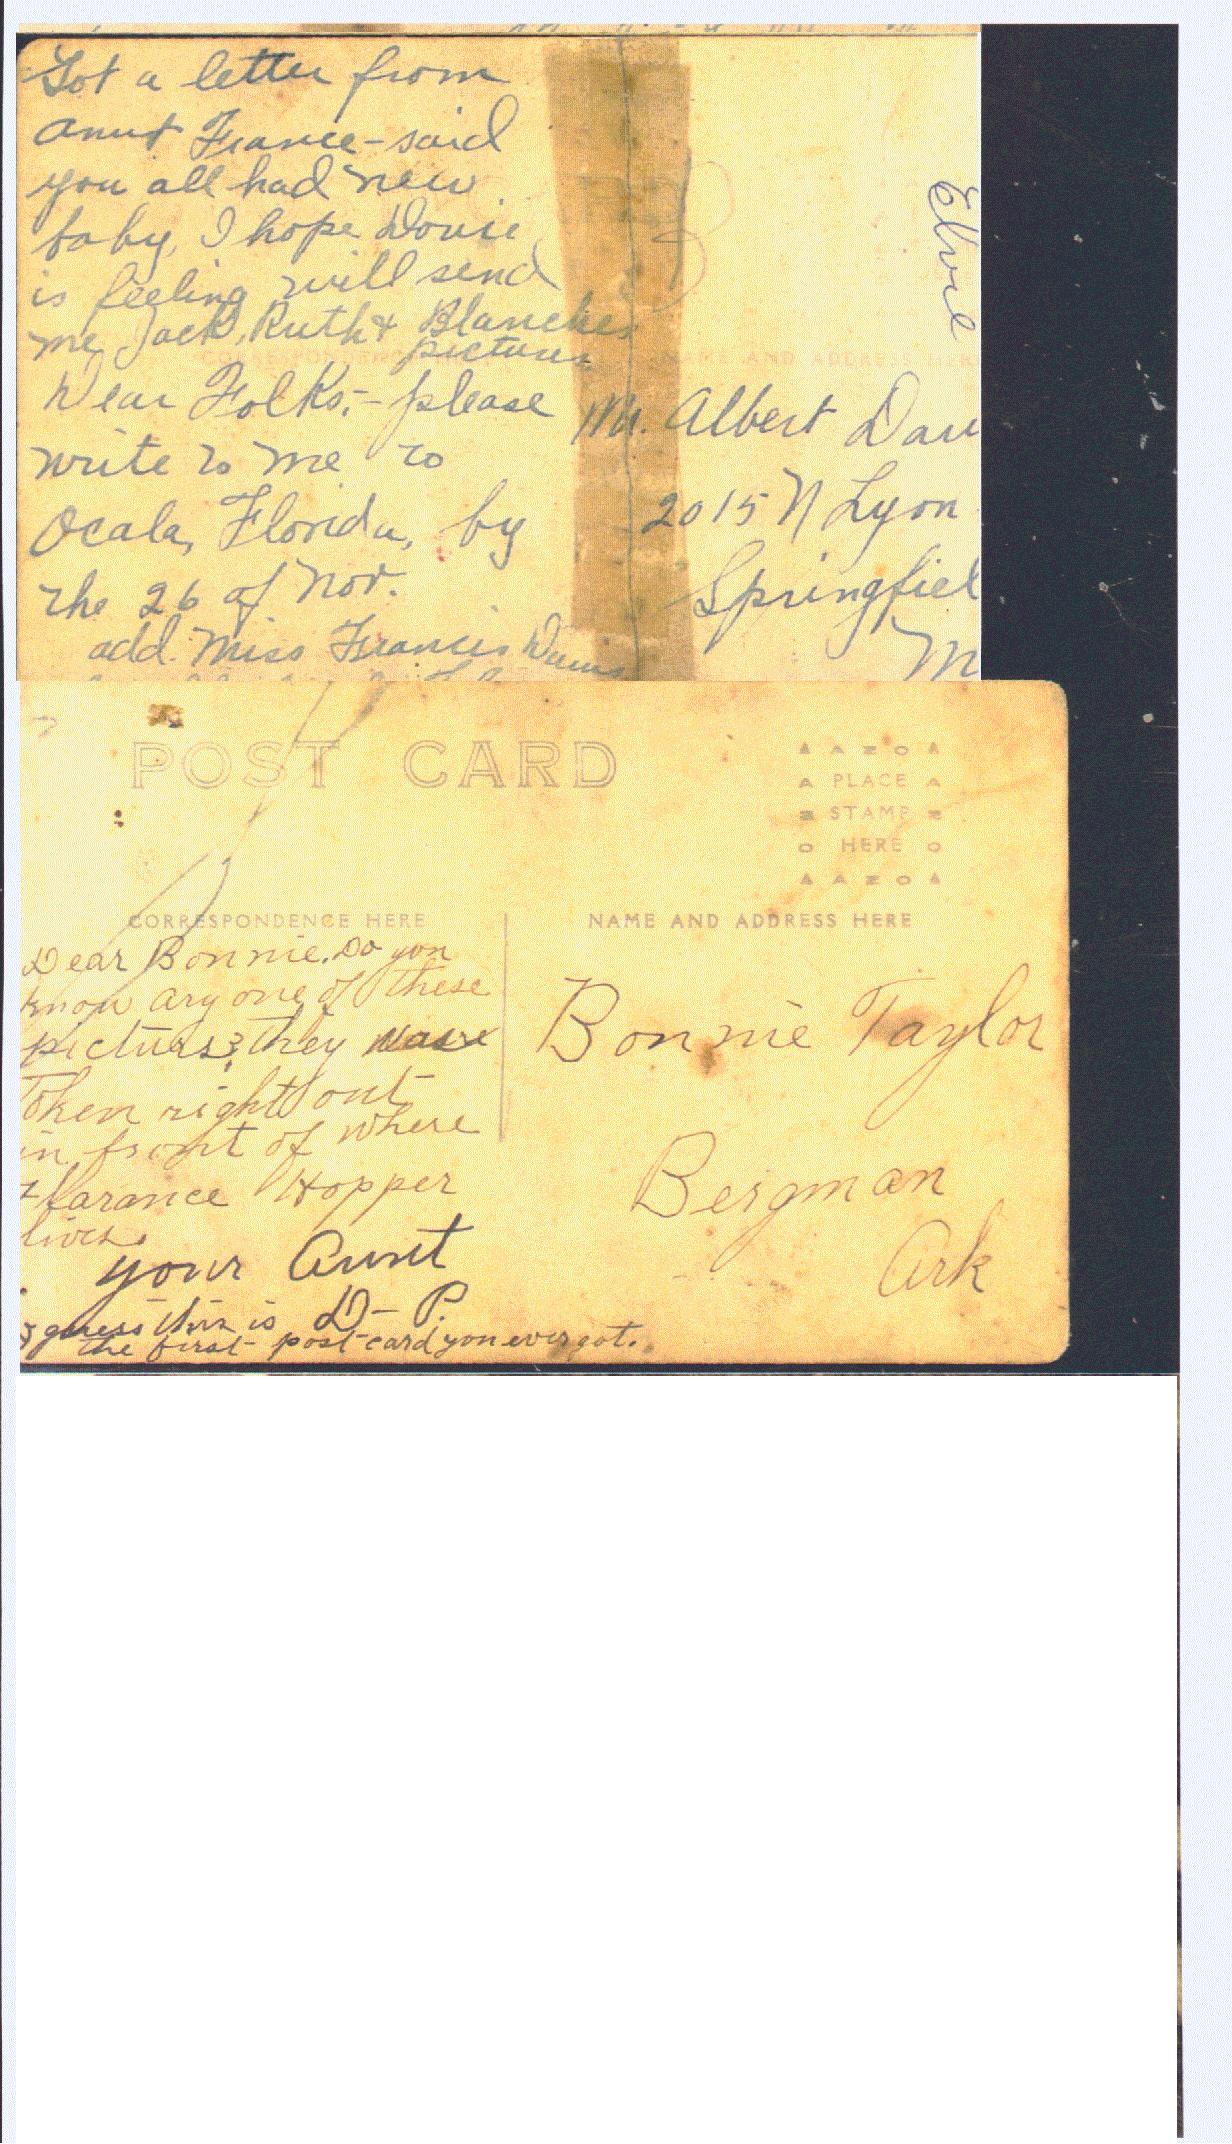 Got a letter from
Anut France - said
you all had new
baby, I hope Dovie
is feeling will send
me Jack, Ruth & Blanches
pictures
CORRESPONDENCE
NAME AND ADDRESS HERE
Dear Folks:- please
write to me to
Ocala, Florida, by
the 26 of Nov.
add. Miss Francis Davis
Elvie
Mr. Albert Dav
2015 N Lyon
Springfiel
M
POST CARD
AZO
PLACE
STAMP
HERE
AZO
CORRESPONDENCE HERE
NAME AND ADDRESS HERE
Dear Bonnie. Do you
know any one of these
pictures? they
Token right out
in front of where
Clarance Hopper
lives.
your Aunt
D- P.
I guess this is
the first post card you ever got.
Bonnie Taylor
Bergman
Ark